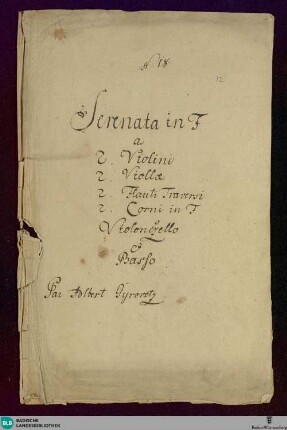 N 18
12
Serenata in F
a
2. Violini
2. Viollæ
2. Flauti Traversi
2. Corni in F
Violoncello
e
Basso
Par Albert Gyrowetz
BLB BADISCHE
LANDESBIBLIOTHEK
Baden-Württemberg